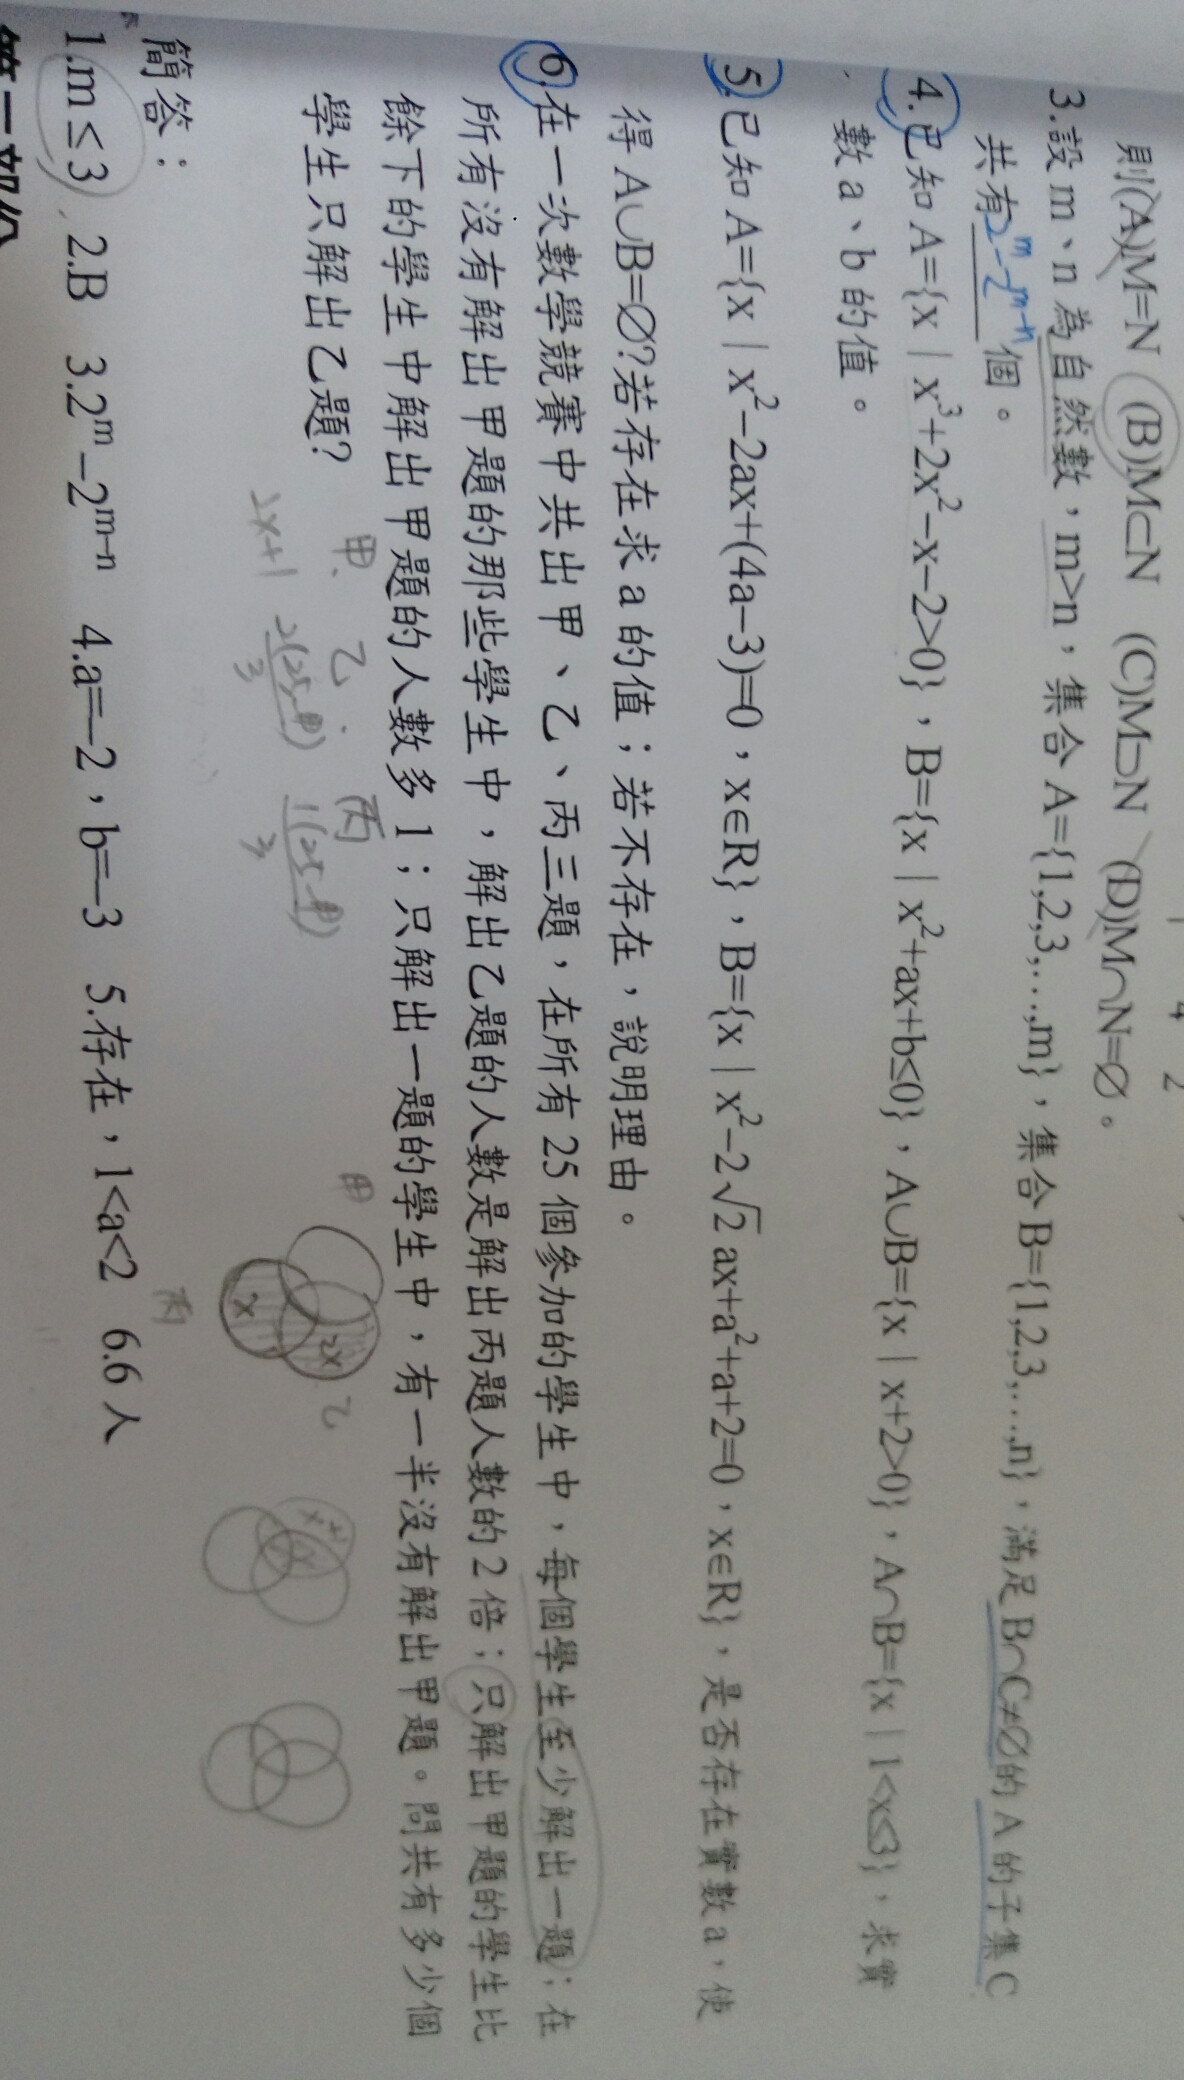 則(A)M=N (B)M⊂N (C)M⊃N (D)M∩N=∅。
3.設 m、n 為自然數，m>n，集合 A={1,2,3,…,m}，集合 B={1,2,3,…,n}，滿足 B∩C≠∅的 A 的子集 C
共有 2^m-2^{m-n} 個。
4.已知 A={x｜x³+2x²−x−2>0}，B={x｜x²+ax+b≤0}，A∪B={x｜x+2>0}，A∩B={x｜1<x≤3}，求實
數 a、b 的值。
5.已知 A={x｜x²−2ax+(4a−3)=0，x∈R}，B={x｜x²−2√2 ax+a²+a+2=0，x∈R}，是否存在實數 a，使
得 A∪B=∅?若存在求 a 的值；若不存在，說明理由。
6.在一次數學競賽中共出甲、乙、丙三題，在所有 25 個參加的學生中，每個學生至少解出一題；在
所有沒有解出甲題的那些學生中，解出乙題的人數是解出丙題人數的 2 倍；只解出甲題的學生比
餘下的學生中解出甲題的人數多 1；只解出一題的學生中，有一半沒有解出甲題。問共有多少個
學生只解出乙題?
甲、 乙、 丙
2x+1 2(25-甲)/3 1(25-甲)/3
甲
2x 乙
x
丙
x+1
x
簡答：
1.m≤3 2.B 3.2^m−2^{m−n} 4.a=−2，b=−3 5.存在，1<a<2 6.6 人